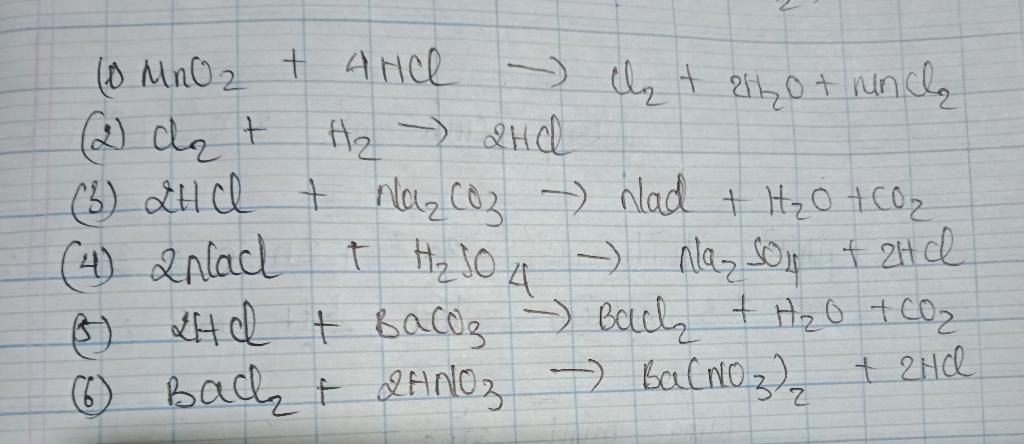 (1) MnO2 + 4HCl → Cl2 + 2H2O + MnCl2
(2) Cl2 + H2 → 2HCl
(3) 2HCl + Na2CO3 → NaCl + H2O + CO2
(4) 2NaCl + H2SO4 → Na2SO4 + 2HCl
(5) 2HCl + BaCO3 → BaCl2 + H2O + CO2
(6) BaCl2 + 2HNO3 → Ba(NO3)2 + 2HCl